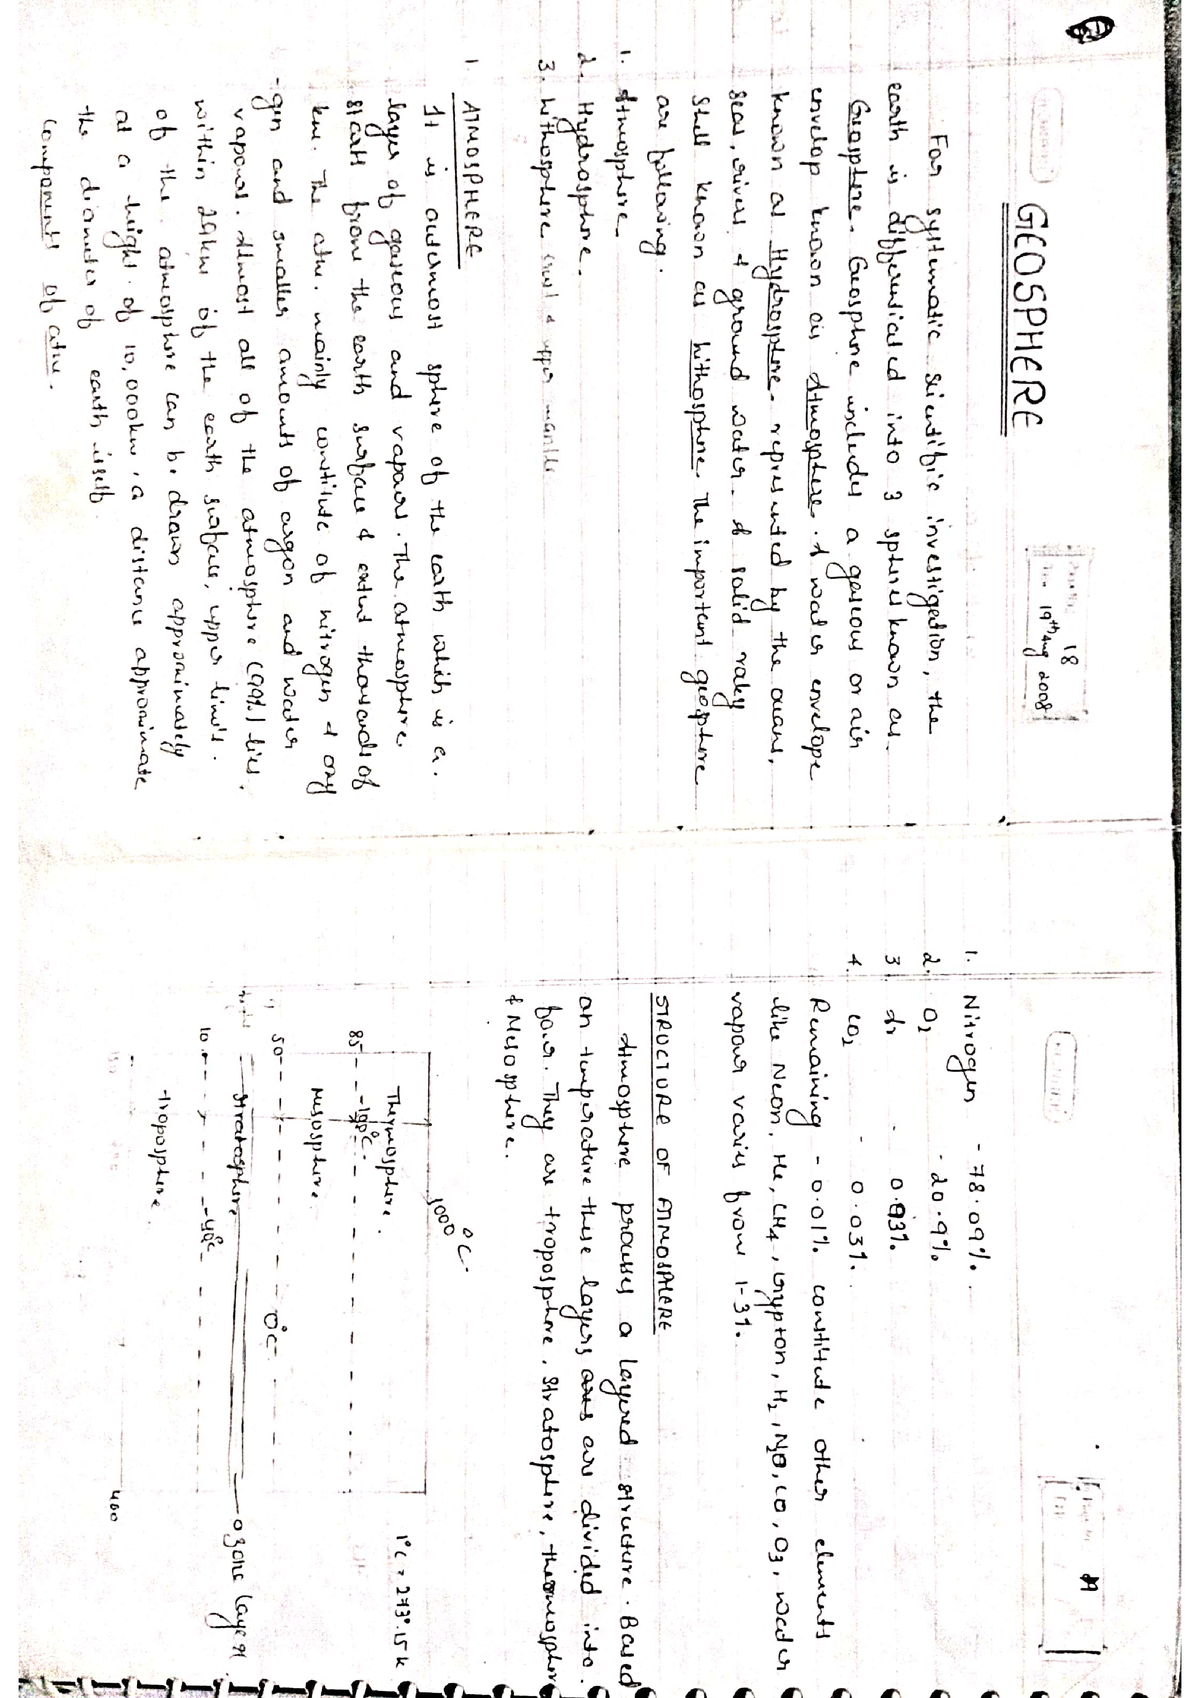 GEOSPHERE
18
19th Aug 2008
For systematic scientific investigation, the
earth is differenticated into 3 spheres known as
Geosphere. Geosphere includes a gaseous or air
envelop known as Atmosphere. A water envelope
known as Hydrosphere. represented by the oceans,
seas, rivers & ground water. & solid rocky
shell known as Lithosphere. The important geosphere
are following.
1. Atmosphere.
2. Hydrosphere.
3. Lithosphere crust & upper mantle
1. ATMOSPHERE
It is outermost sphere of the earth which is a.
layer of gaseous and vapours. The atmosphere
starts from the earth surface & extent thousands of
km. The atm. mainly constitute of nitrogen & oxy
-gen and smaller amounts of argon and water
vapours. Almost all of the atmosphere (99%) lies,
within 29km of the earth surface, upper limits.
of the atmosphere can be drawn approximately
at a height of 10,000km, a distance approximate
the diameter of earth itself.
Components of atm.
1. Nitrogen - 78.09%.
2. O2 - 20.9%
3. Ar - 0.93%.
4. CO2 - 0.03%.
Remaining - 0.01% constitute other elements
like Neon, He, CH4, crypton, H2, N2O, CO, O3, water
vapour varies from 1-3%.
STRUCTURE OF ATMOSPHERE
Atmosphere process a layered structure. Based
on temperature these layers are divided into
four. They are troposphere, stratosphere, thermospher
& Mesosphere.
1000°C.
1°C = 273°.15 k
Thermosphere.
85 -100°C.
Mesosphere.
50 0°C
Stratosphere
ozone layer
10 -40°C
troposphere.
400